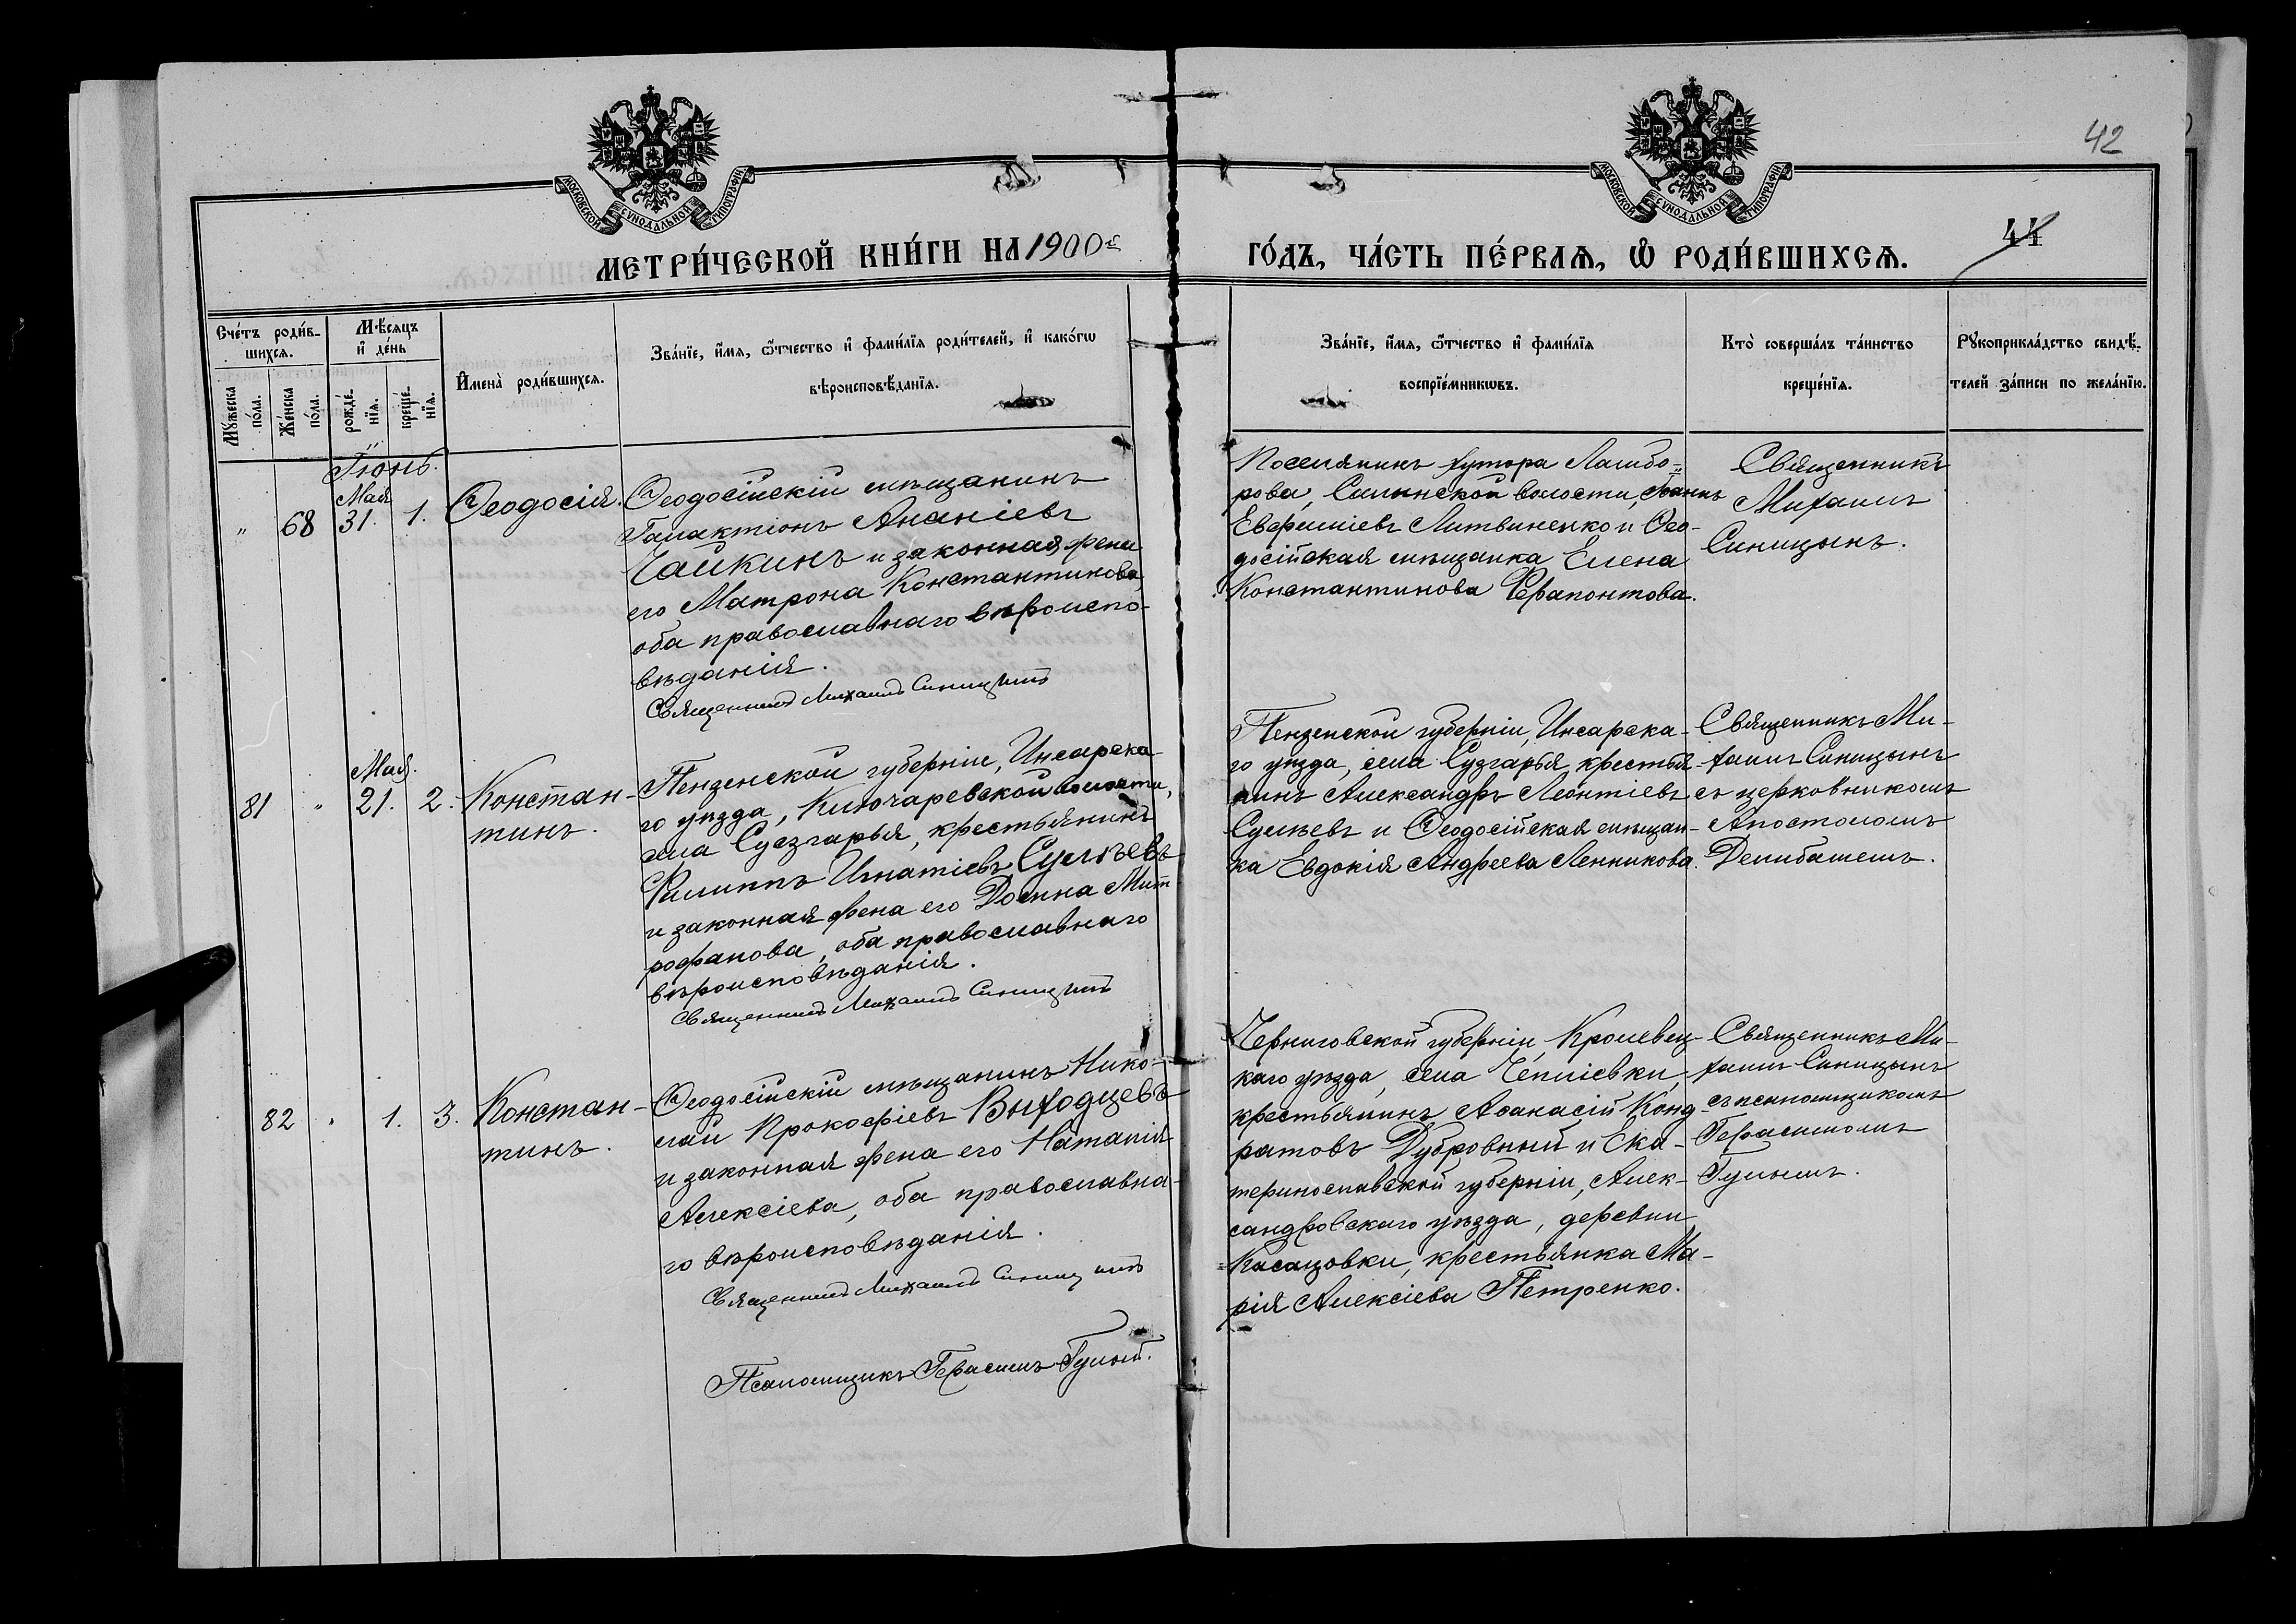 42
МОСКОВСКОЙ СУНОДАЛЬНОЙ ТИПОГРАФІИ
МОСКОВСКОЙ СУНОДАЛЬНОЙ ТИПОГРАФІИ
44
МЕТРИ́ЧЕСКОЙ КНИ́ГИ НА 1900й ГО́ДЪ, ЧА́СТЬ ПЕ́РВАѦ, Ѡ РОДИ́ВШИХСѦ.
Сче́тъ роди́в-
шихсѧ.
Мꙋ́жеска по́ла.
Же́нска по́ла.
Мѣ́сѧцъ
и҆ де́нь
рожде́-
нїѧ.
креще́-
нїѧ.
И҆мена̀ роди́вшихсѧ.
Зва́нїе, и҆́мѧ, ѻ҆́тчество и҆ фами́лїѧ роди́телей, и҆ како́гѡ
вѣроисповѣ́данїѧ.
Зва́нїе, и҆́мѧ, ѻ҆́тчество и҆ фами́лїѧ
воспрїе́мникѡвъ.
Кто̀ соверша́лъ та́инство
креще́нїѧ.
Рꙋкоприкла́дство свидѣ́-
телей за́писи по жела́нїю.
Іюнь.
" 68
Мая
31. 1.
Ѳеодосія.
Ѳеодосійскій мѣщанинъ
Галактіонъ Ананіевъ
Чайкинъ и законная жена
его Матрона Константинова,
оба православнаго вѣроиспо-
вѣданія.
Священникъ Михаилъ Синицынъ
Поселянинъ хутора
рова, волости, Іоаннъ
Литвиненко и Ѳео-
досійская мѣщанка Елена
Константинова Ферапонтова.
Священникъ
Михаилъ
Синицынъ.
81 "
Мая.
21. 2.
Констан-
тинъ.
Пензенской губерніи, Инсарска-
го уѣзда, Ключаревской волости,
села Сузгарья, крестьянинъ
Филиппъ Игнатіевъ Сулѣевъ
и законная жена его Домна Мит-
рофанова, оба православнаго
вѣроисповѣданія.
Священникъ Михаилъ Синицынъ
Пензенской губерніи, Инсарска-
го уѣзда, села Сузгарья, крестья-
нинъ Александръ Леонтіевъ
Сулѣевъ и Ѳеодосійская мѣщан-
ка Евдокія Андреева Ленникова.
Священникъ Ми-
хаилъ Синицынъ
съ церковникомъ
Апостоломъ
Делибашемъ.
82 " 1. 3.
Констан-
тинъ.
Ѳеодосійскій мѣщанинъ Нико-
лай Прокофіевъ Выходцевъ
и законная жена его Наталія
Алексіева, оба православна-
го вѣроисповѣданія.
Священникъ Михаилъ Синицынъ
Черниговской губерніи, Кролевец-
каго уѣзда, села Чепліевки,
крестьянинъ Аѳанасій Конд-
ратовъ Дубровный и Ека-
теринославской губерніи, Алек-
сандровскаго уѣзда, деревни
крестьянка Ма-
рія Алексіева Петренко.
Священникъ Ми-
хаилъ Синицынъ
съ псаломщикомъ
Герасимомъ
Гулымъ.
Псаломщикъ Герасимъ Гулый.